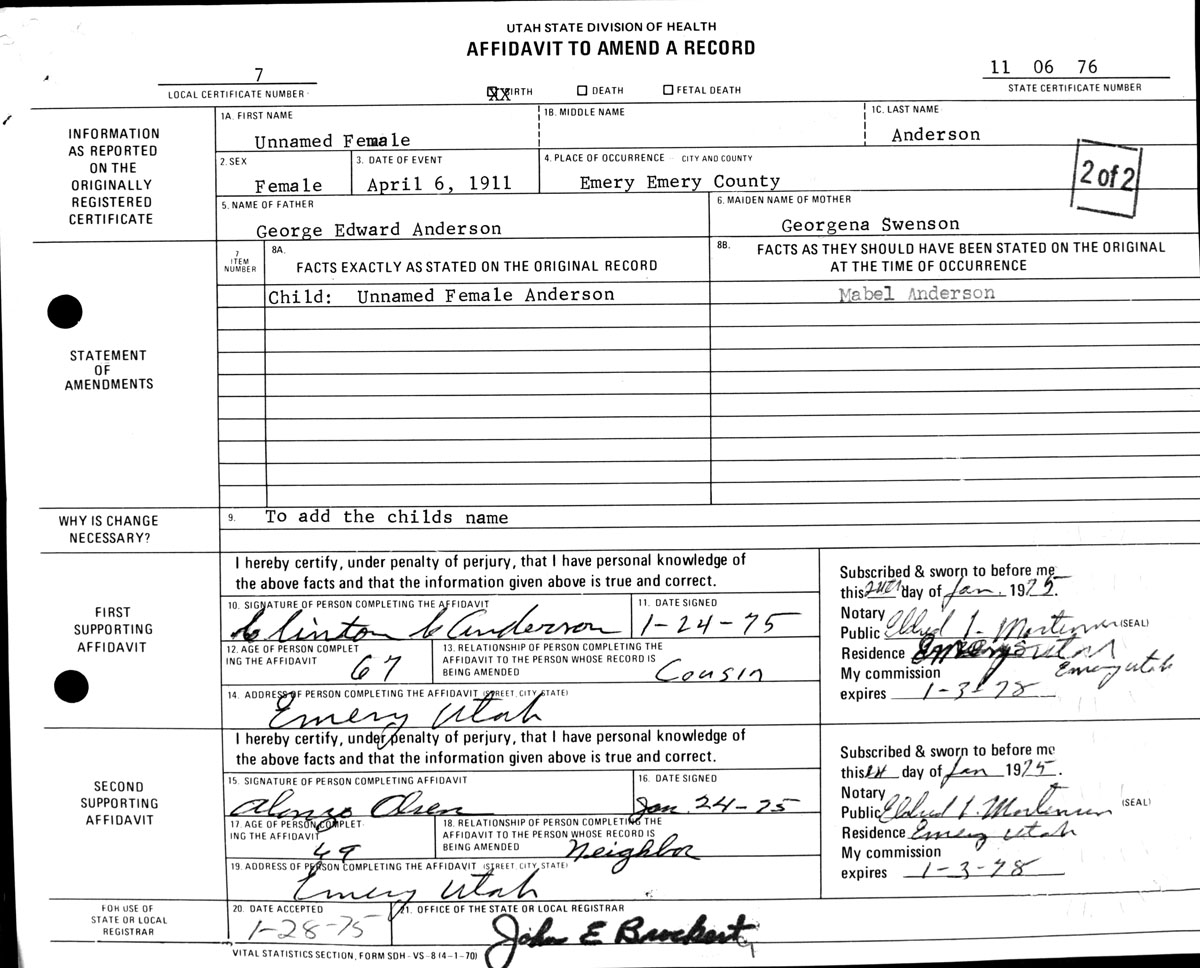 UTAH STATE DIVISION OF HEALTH
AFFIDAVIT TO AMEND A RECORD
7
LOCAL CERTIFICATE NUMBER
XX BIRTH
DEATH
FETAL DEATH
11 06 76
STATE CERTIFICATE NUMBER
INFORMATION
AS REPORTED
ON THE
ORIGINALLY
REGISTERED
CERTIFICATE
1A. FIRST NAME
Unnamed Female
1B. MIDDLE NAME
1C. LAST NAME
Anderson
2. SEX
Female
3. DATE OF EVENT
April 6, 1911
4. PLACE OF OCCURRENCE - CITY AND COUNTY
Emery Emery County
2 of 2
5. NAME OF FATHER
George Edward Anderson
6. MAIDEN NAME OF MOTHER
Georgena Swenson
STATEMENT
OF
AMENDMENTS
7
ITEM
NUMBER
8A.
FACTS EXACTLY AS STATED ON THE ORIGINAL RECORD
8B. FACTS AS THEY SHOULD HAVE BEEN STATED ON THE ORIGINAL
AT THE TIME OF OCCURRENCE
Child: Unnamed Female Anderson
Mabel Anderson
WHY IS CHANGE
NECESSARY?
9. To add the childs name
FIRST
SUPPORTING
AFFIDAVIT
I hereby certify, under penalty of perjury, that I have personal knowledge of
the above facts and that the information given above is true and correct.
10. SIGNATURE OF PERSON COMPLETING THE AFFIDAVIT
Clinton C Anderson
11. DATE SIGNED
1-24-75
12. AGE OF PERSON COMPLET
ING THE AFFIDAVIT
67
13. RELATIONSHIP OF PERSON COMPLETING THE
AFFIDAVIT TO THE PERSON WHOSE RECORD IS
BEING AMENDED
Cousin
14. ADDRESS OF PERSON COMPLETING THE AFFIDAVIT (STREET, CITY, STATE)
Emery Utah
Subscribed & sworn to before me
this 24th day of Jan. 1975.
Notary
Public Eldred I. Mortensen (SEAL)
Residence Emery Utah
My commission Emery Utah
expires 1-3-78
SECOND
SUPPORTING
AFFIDAVIT
I hereby certify, under penalty of perjury, that I have personal knowledge of
the above facts and that the information given above is true and correct.
15. SIGNATURE OF PERSON COMPLETING AFFIDAVIT
Alonzo Olsen
16. DATE SIGNED
Jan. 24-75
17. AGE OF PERSON COMPLET
ING THE AFFIDAVIT
69
18. RELATIONSHIP OF PERSON COMPLETING THE
AFFIDAVIT TO THE PERSON WHOSE RECORD IS
BEING AMENDED
Neighbor
19. ADDRESS OF PERSON COMPLETING THE AFFIDAVIT (STREET, CITY, STATE)
Emery Utah
Subscribed & sworn to before me
this 24 day of Jan 1975.
Notary
Public Eldred I. Mortensen (SEAL)
Residence Emery Utah
My commission
expires 1-3-78
FOR USE OF
STATE OR LOCAL
REGISTRAR
20. DATE ACCEPTED
1-28-75
21. OFFICE OF THE STATE OR LOCAL REGISTRAR
John E Brockert
VITAL STATISTICS SECTION, FORM SDH-VS-8 (4-1-70)